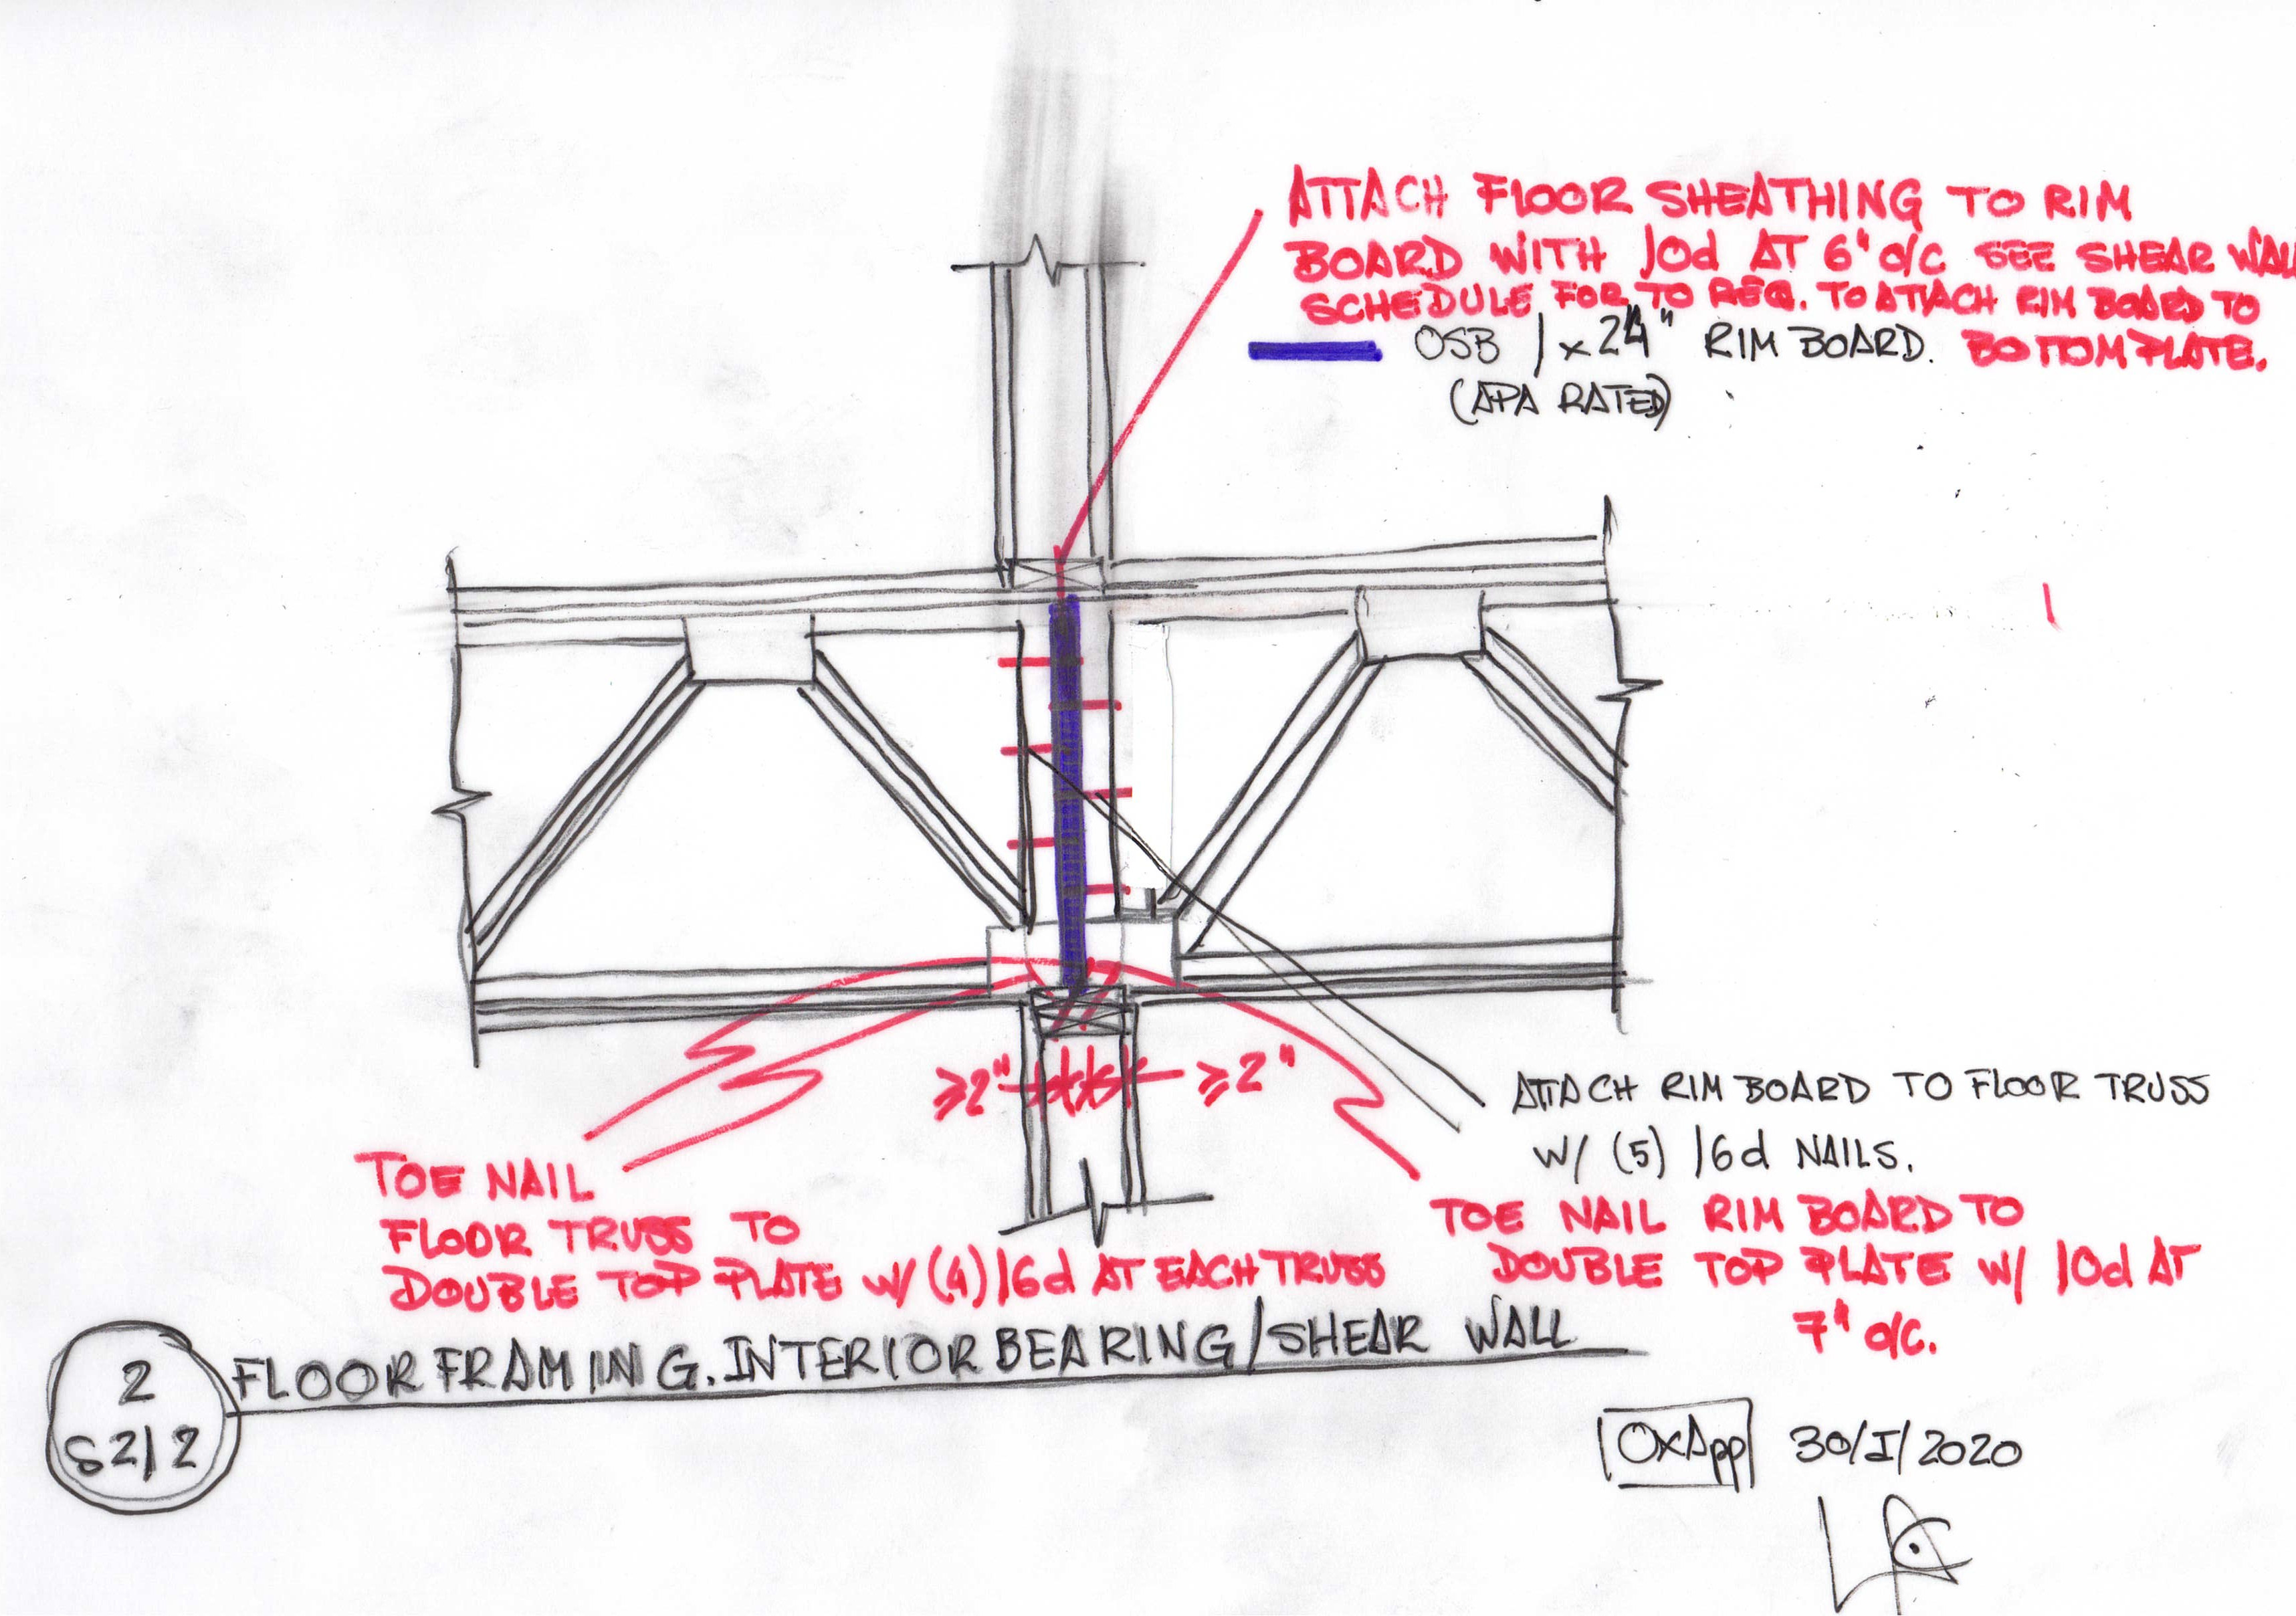 ATTACH FLOOR SHEATHING TO RIM
BOARD WITH 10d AT 6" o/c SEE SHEAR WALL
SCHEDULE FOR TO REQ. TO ATTACH RIM BOARD TO
OSB 1x24" RIM BOARD. BOTTOM PLATE.
(APA RATED)
≥2" ≥2"
ATTACH RIM BOARD TO FLOOR TRUSS
W/ (5) 16d NAILS.
TOE NAIL
FLOOR TRUSS TO
DOUBLE TOP PLATE W/ (4) 16d AT EACH TRUSS
TOE NAIL RIM BOARD TO
DOUBLE TOP PLATE W/ 10d AT
7" o/c.
2
S2/2
FLOOR FRAMING. INTERIOR BEARING/SHEAR WALL
OxApp 30/I/2020